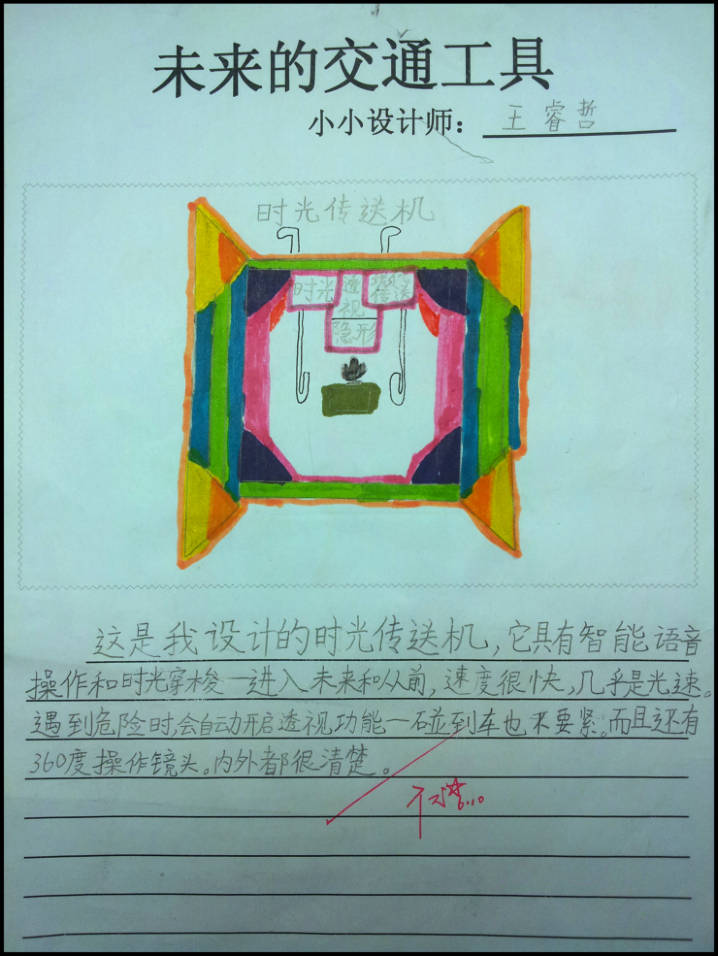 未来的交通工具
小小设计师：王睿哲
时光传送机
时光 透视 传送
隐形
这是我设计的时光传送机，它具有智能语音
操作和时光穿梭—进入未来和从前，速度很快，几乎是光速。
遇到危险时，会自动开启透视功能—碰到车也不要紧。而且还有
360度操作镜头。内外都很清楚。